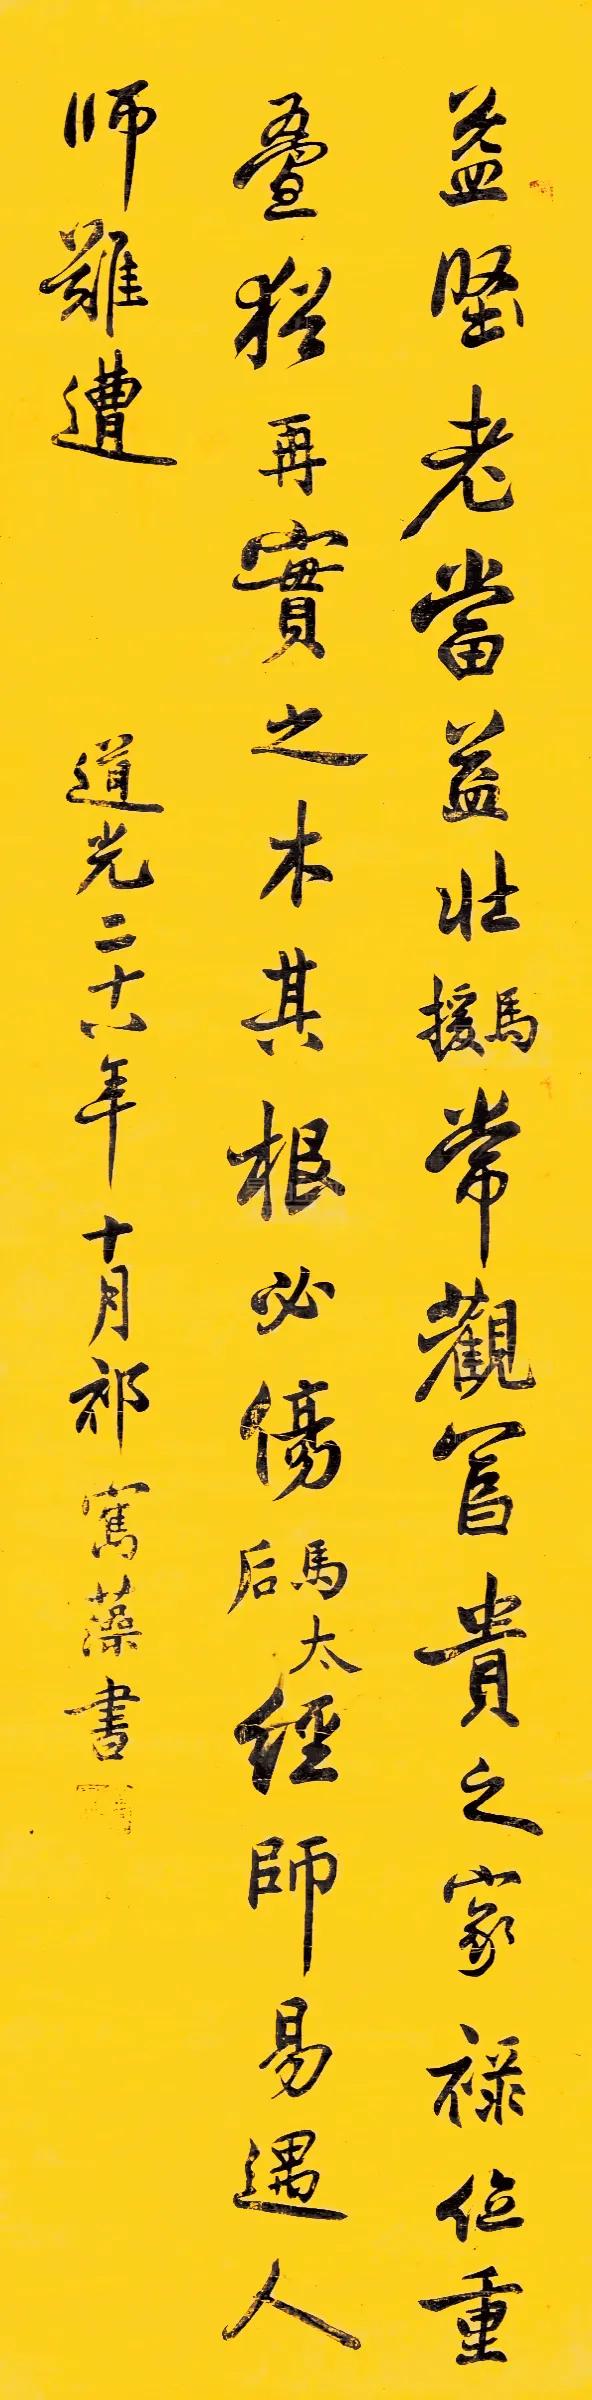 益堅老當益壯馬援常觀富貴之家祿位重
疊猶再實之木其根必傷馬太后經師易遇人
师難遭
道光二十六年十月祁寯藻書